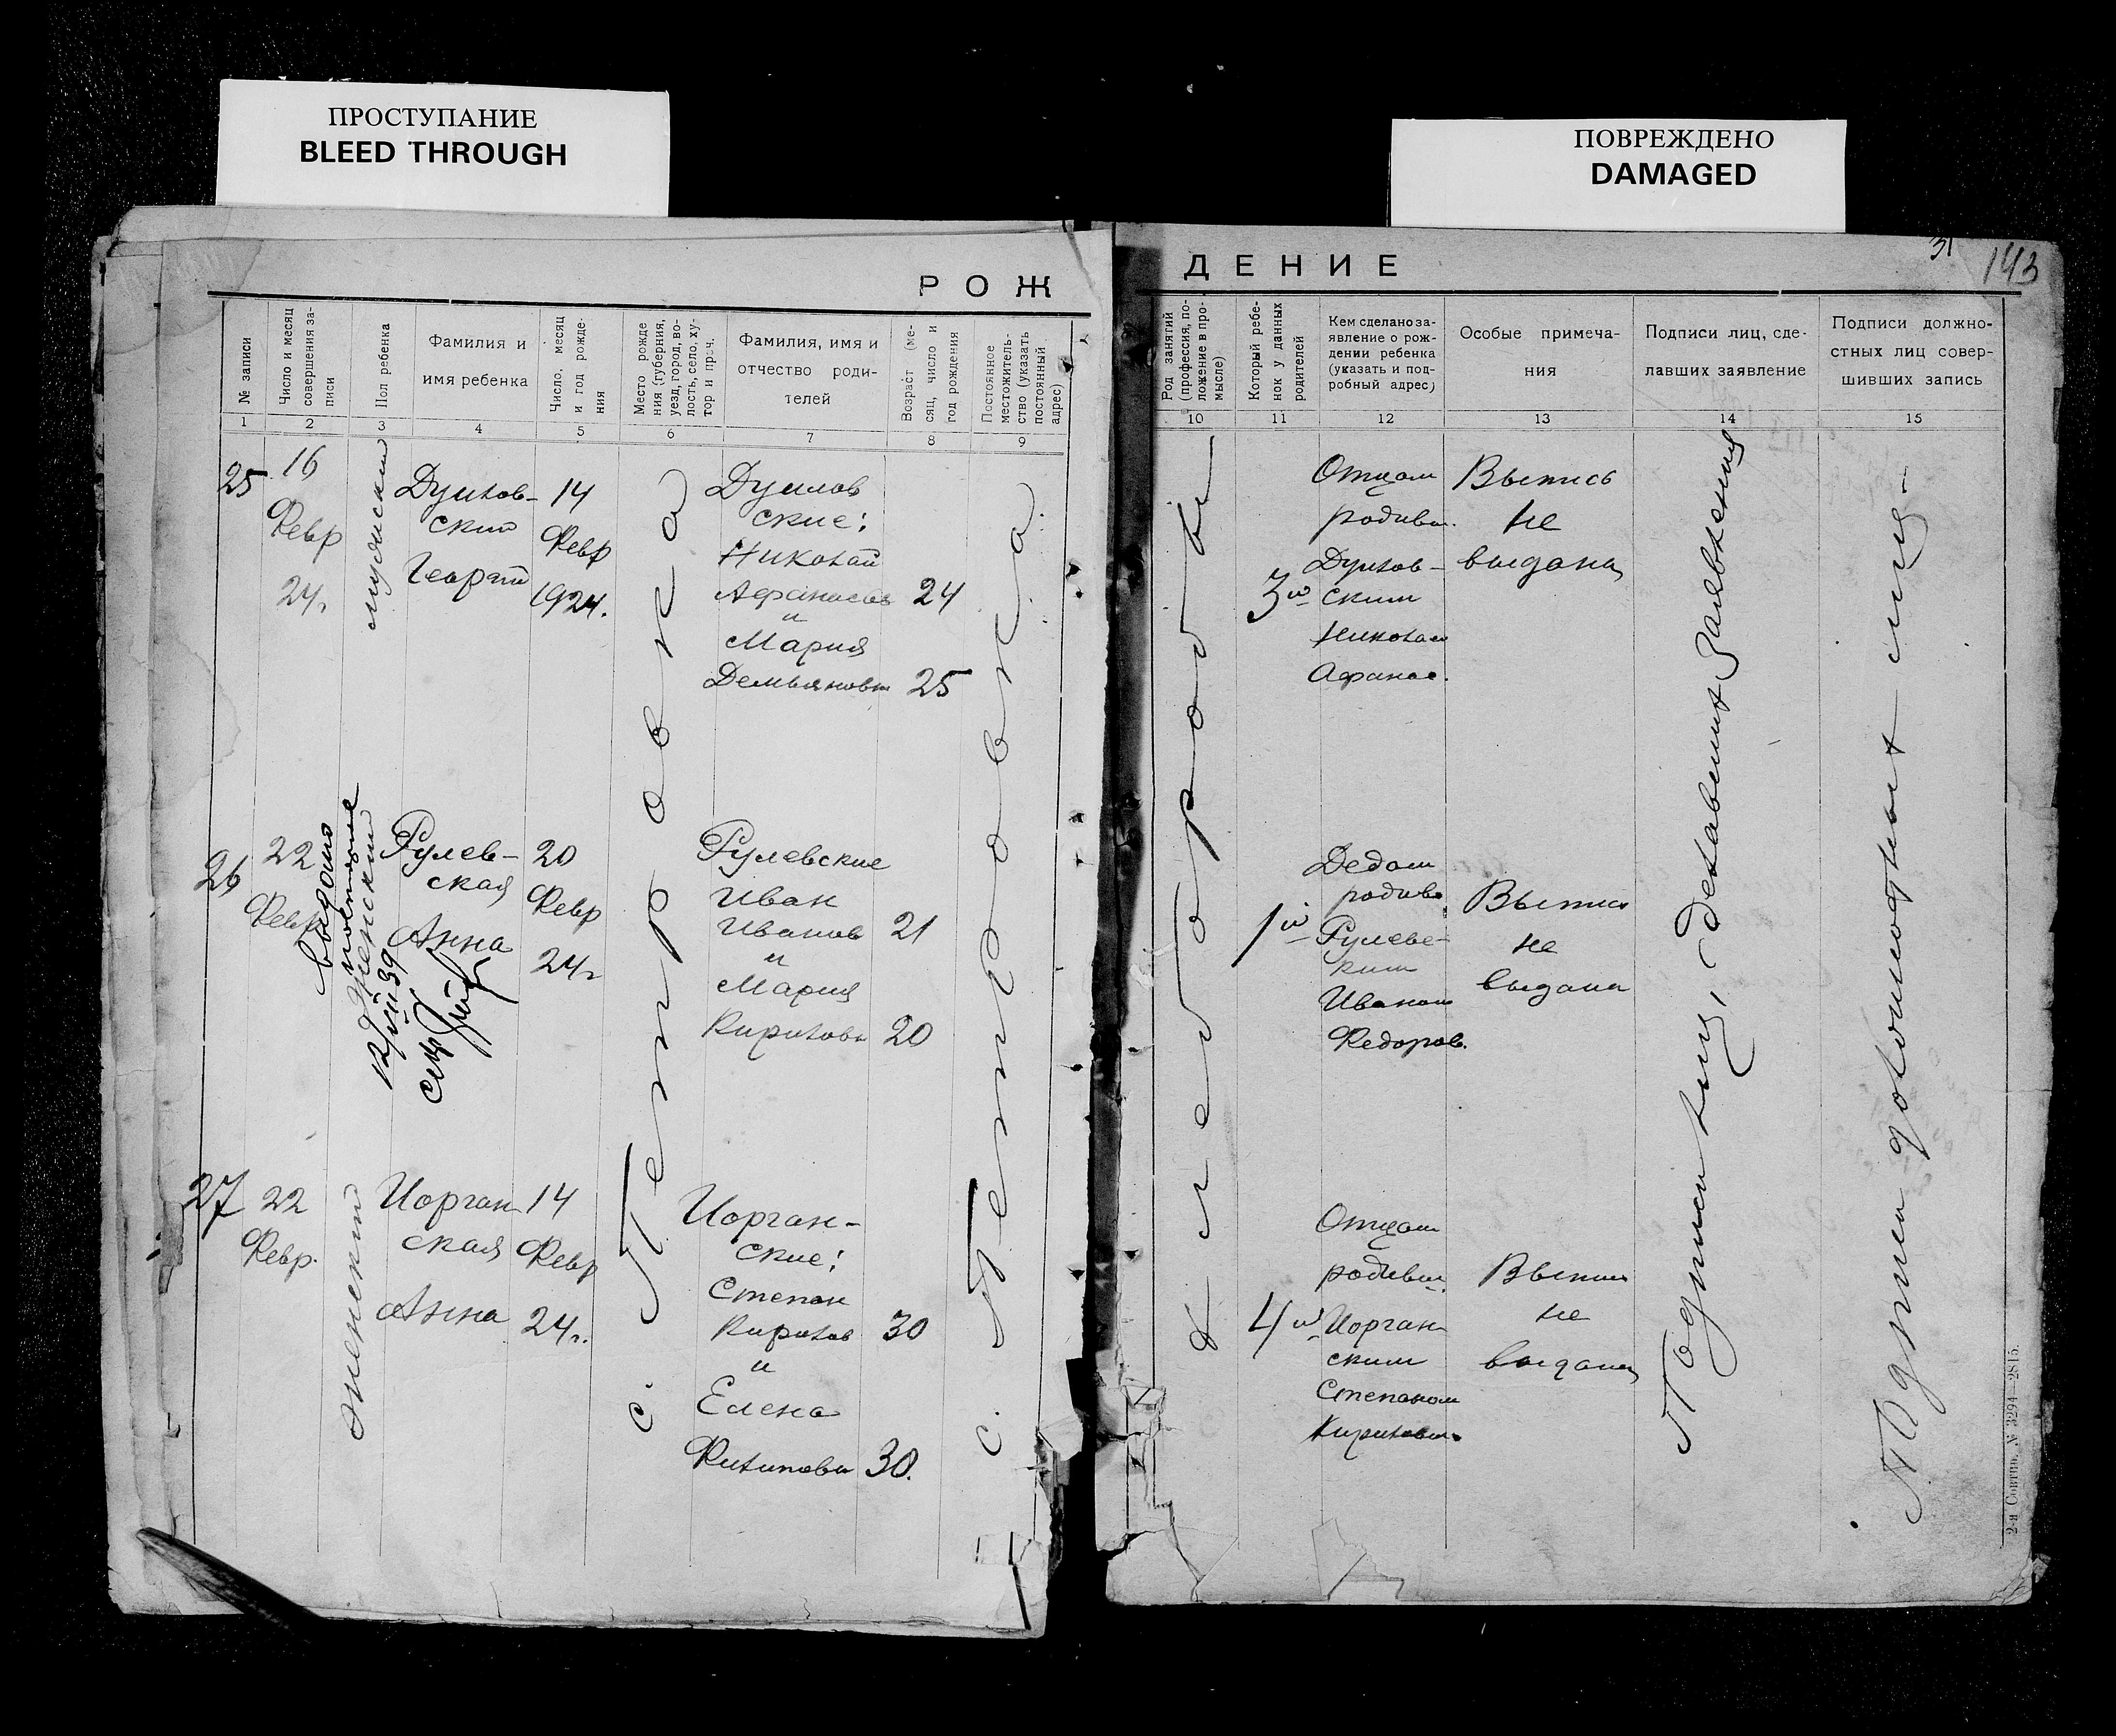 ПРОСТУПАНИЕ
BLEED THROUGH
ПОВРЕЖДЕНО
DAMAGED
РОЖ
ДЕНИЕ
31
143
№ записи
Число и месяц
совершения за-
писи
Пол ребенка
Фамилия и
имя ребенка
Число, месяц
и год рожде-
ния
Место рожде
ния (губерния,
уезд, город, во-
лость, село, ху-
тор и проч.
Фамилия, имя и
отчество роди-
телей
Возраст (ме-
сяц, число и
год рождения
Постоянное
местожитель-
ство (указать
постоянный
адрес)
Род занятий
(профессия, по-
ложение в про-
мысле)
Который ребе-
нок у данных
родителей
Кем сделано за-
явление о рож-
дении ребенка
(указать и под-
робный адрес)
Особые примеча-
ния
Подписи лиц, сде-
лавших заявление
Подписи должно-
стных лиц совер-
шивших запись
1
2
3
4
5
6
7
8
9
10
11
12
13
14
15
25
16
Февр
24.
мужский
Георгий
14
Февр
1924.
ские:
Николай
и
Мария
Демьяновн
24
25
3й
Отцом
родивш.
ским
Николаем
Афанас.
Выпись
не
выдана
26
22
Февр
женский
Рулев-
ская
Анна
20
Февр
24г
Рулевские
Иван
Иванов
и
Мария
Кириловн
21
20
1й
Дедом
родивш
Рулевс-
ким
Иваном
Федоров.
Выпись
не
выдана
27
22
Февр.
женский
Иорган-
ская
Анна
14
Февр
24г.
Иорган-
ские:
Степан
Кирилов
и
Елена
Филипповн
30
30.
4й
Отцом
родивш.
Иорган-
ским
Степаном
Кириловым.
Выпись
не
выдана
с. Петровка
с. Петровка.
хлебороб
Подписи лиц, делавших Заявления
Подписи должностных лиц
2-я Совтип. № 3294—2815.